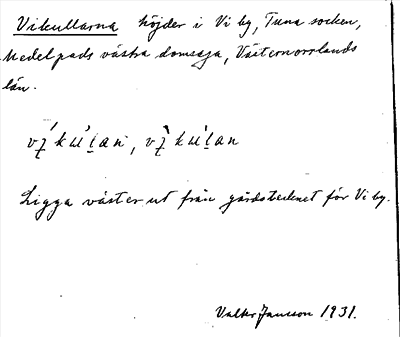 Vikullarna höjder i Vi by, Tuna socken,
Medelpads västra domsaga, Västernorrlands
län.
Ligga väster ut från gårdstecknet för Vi by.
Valter Jansson 1931.